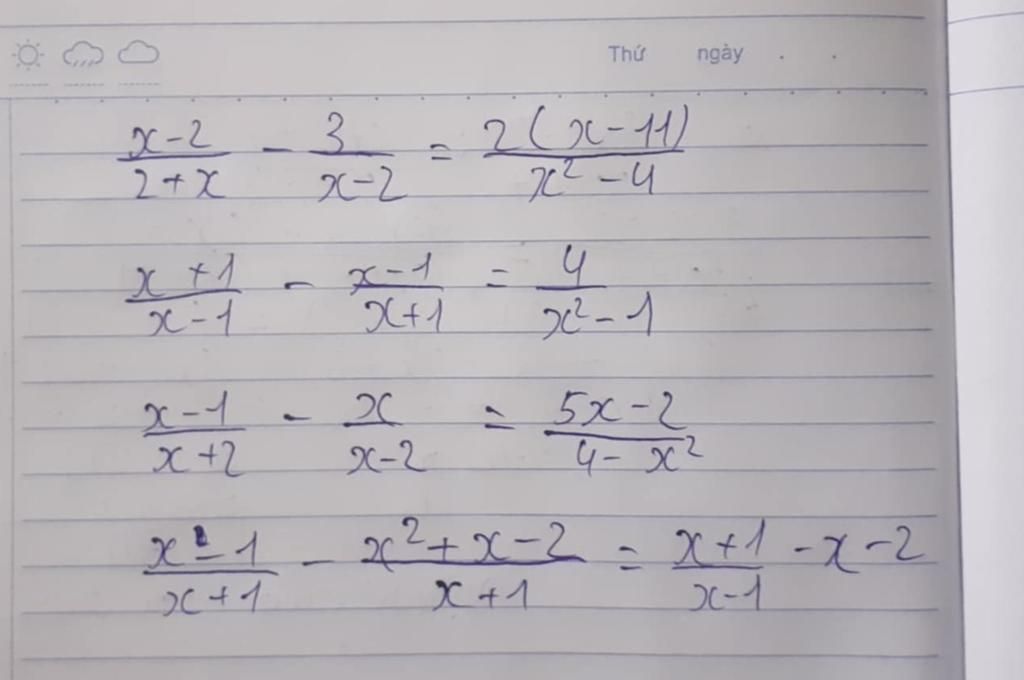 Thứ ngày . .
x-2/2+x - 3/x-2 = 2(x-11)/x²-4
x+1/x-1 - x-1/x+1 = 4/x²-1
x-1/x+2 - x/x-2 = 5x-2/4-x²
x-1/x+1 - x²+x-2/x+1 = x+1/x-1 -x-2